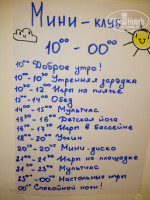 Мини-клуб
10⁰⁰ - 00⁰⁰
10⁰⁰ Доброе утро!
10⁰⁰-10³⁰ Утренняя зарядка
10³⁰-12⁰⁰ Игры на пляже
12⁰⁰-14⁰⁰ Обед
14⁰⁰ Мультчас
15⁰⁰ Детская йога
Игры в бассейне
18⁰⁰-20⁰⁰ Ужин
20⁰⁰ Мини-диско
21⁰⁰ Игры на площадке
Мультчас
Настольные игры
00⁰⁰ Спокойной ночи!